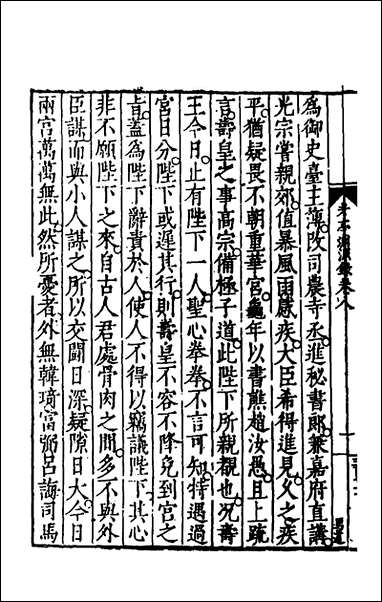 為御史臺主簿改司農寺丞進秘書郎兼嘉府直講
光宗嘗親郊值暴風雨感疾大臣希得進見久之疾
平猶疑畏不朝重華宮龜年以書譙趙汝愚且上疏
言壽皇之事高宗備極子道此陛下所親覩也况壽
王今日止有陛下一人聖心拳拳不言可知特遇過
宮日分陛下或遲其行則壽皇不容不降免到宮之
旨蓋為陛下辭責於人使人不得以竊議陛下其心
非不願陛下之來自古人君處骨肉之間多不與外
臣謀而與小人謀之所以交鬪日深疑隙日大今日
兩宮萬萬無此然所憂者外無韓琦富弼呂誨司馬